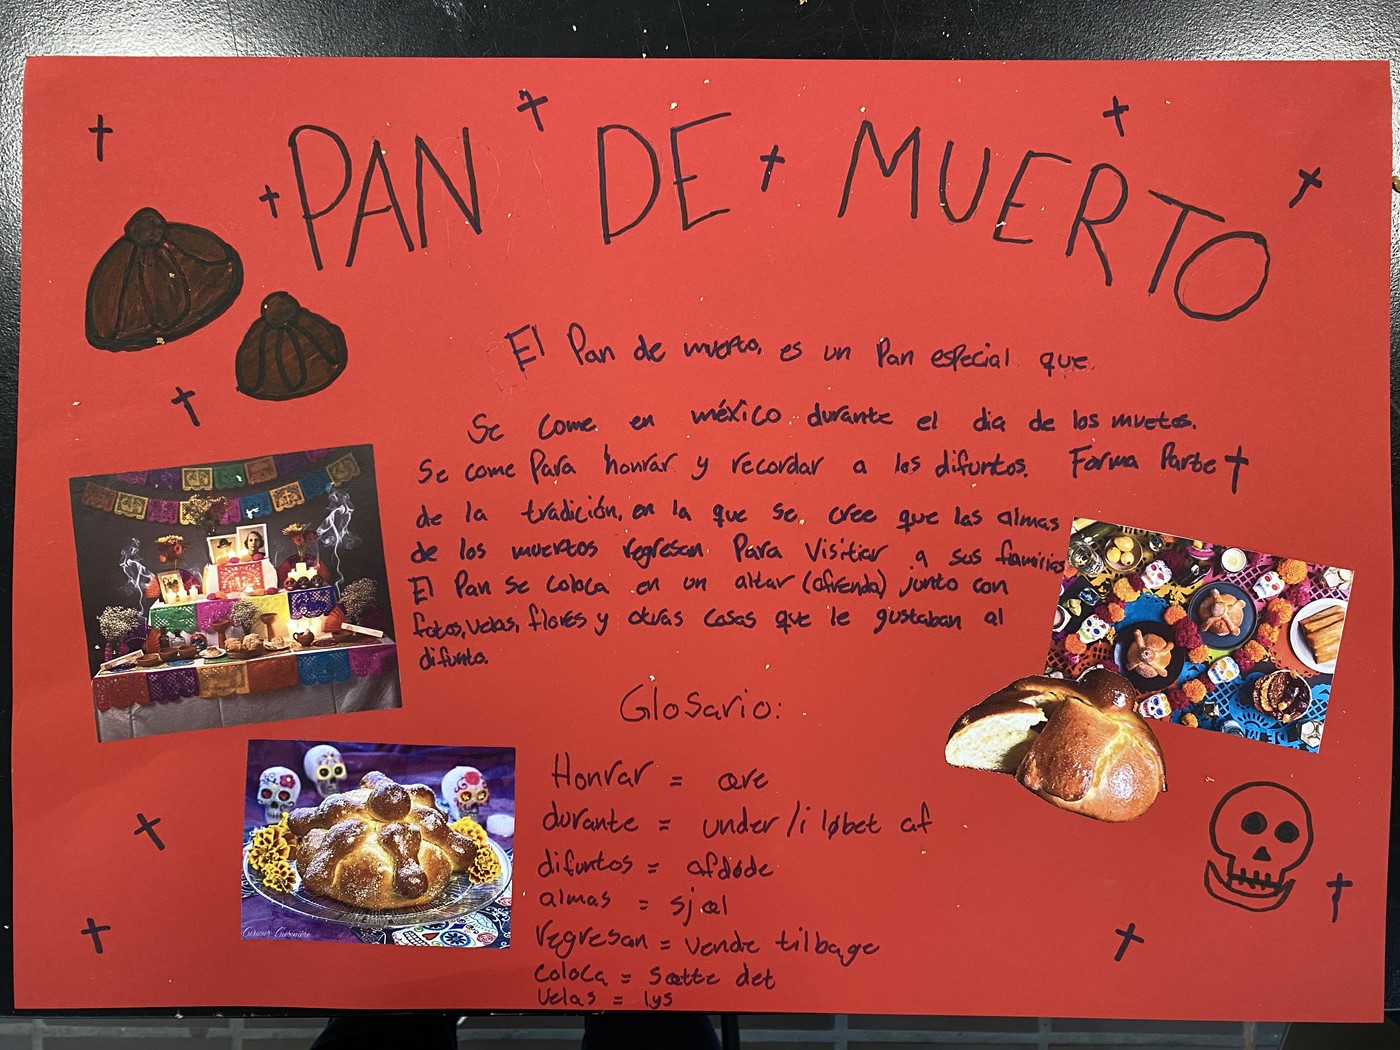 PAN DE MUERTO
El Pan de muerto, es un Pan especial que
Se come en méxico durante el dia de los muetos.
Se come Para honrar y recordar a los difuntos. Forma Parte
de la tradición, en la que se cree que las almas
de los muertos regresan Para Visitiar a sus familias
El Pan se coloca en un altar (ofrenda) junto con
fotos, velas, flores y otras cosas que le gustaban al
difunto.
Glosario:
Honrar = ære
durante = under/i løbet af
difuntos = afdøde
almas = sjæl
regresan = vende tilbage
coloca = sætte det
velas = lys
Curious Cuisinière